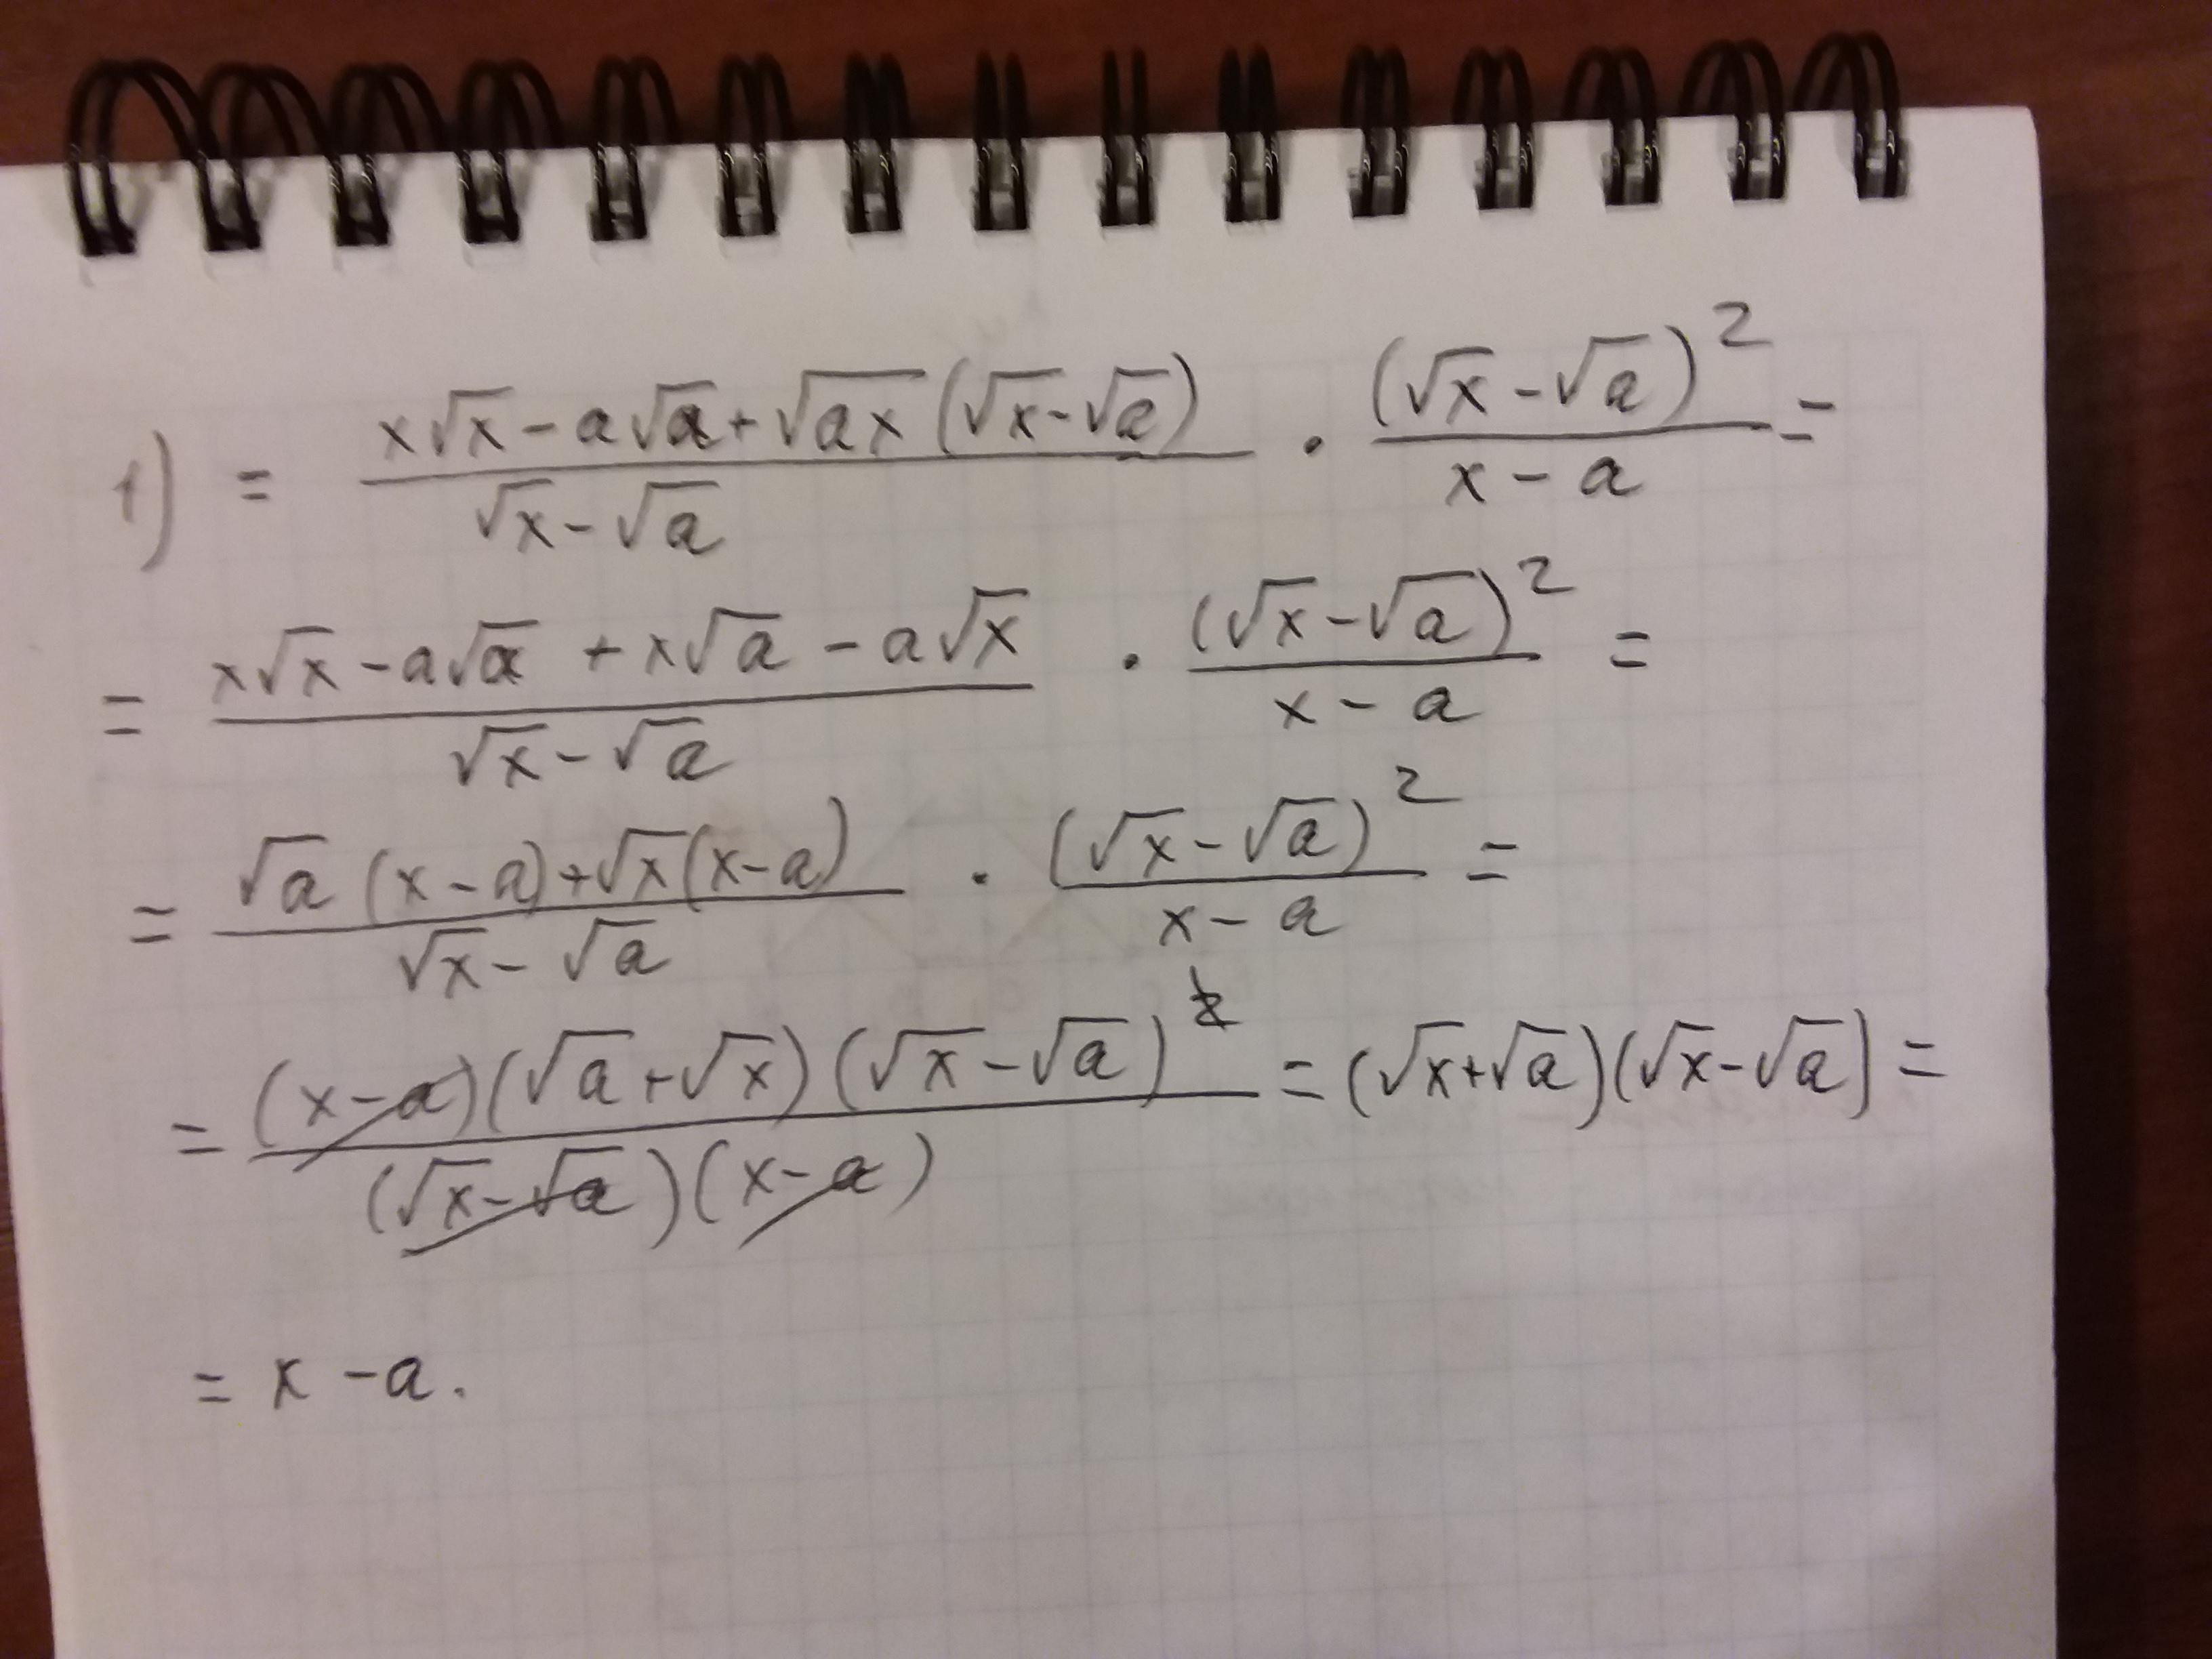 1) = (x√x - a√a + √ax (√x - √a)) / (√x - √a) · (√x - √a)² / (x - a) =
= (x√x - a√a + x√a - a√x) / (√x - √a) · (√x - √a)² / (x - a) =
= (√a (x - a) + √x (x - a)) / (√x - √a) · (√x - √a)² / (x - a) =
= (x - a)(√a + √x)(√x - √a)² / (√x - √a)(x - a) = (√x + √a)(√x - √a) =
= x - a.